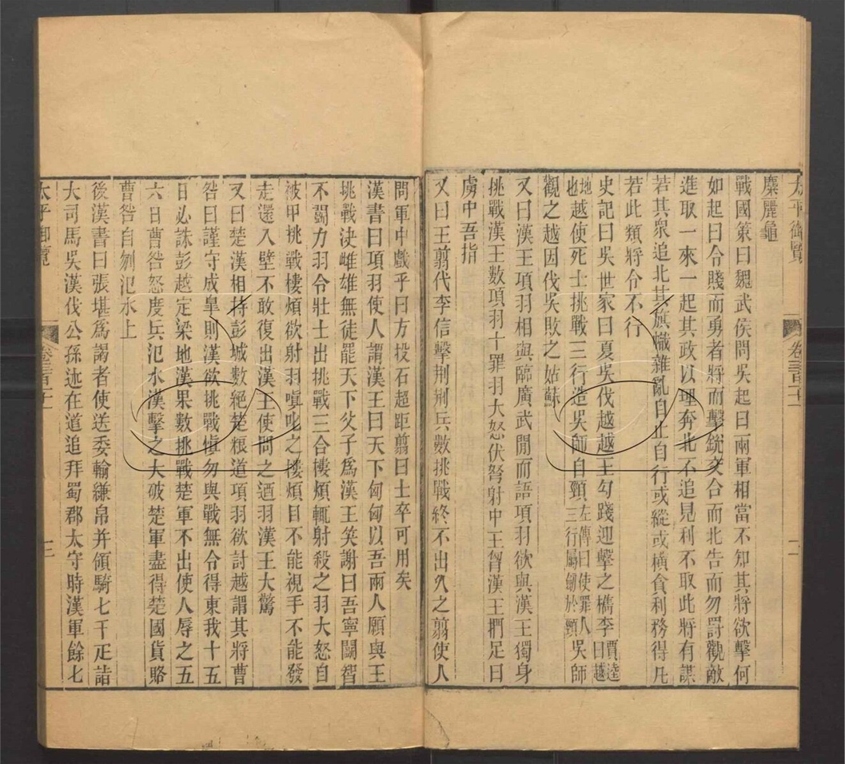 太平御覽
麋麗龜
戰國策曰魏武侯問吳起曰兩軍相當不知其將欲擊何
如起曰令賤而勇者將而擊統交合而北告而勿罰觀敵
進取一來一起其政以理奔北不追見利不取此將有謀
若其衆追北其旗幟雜亂自止自行或縱或橫貪利務得凡
若此類將令不行
史記曰吳世家曰夏吳伐越越王勾踐迎擊之檇李賈逵曰越
地越使死士挑戰三行造吳師自頸左傳曰使罪人三行屬劒於頸吳師
觀之越因伐吳敗之姑蘇
又曰漢王項羽相與臨廣武閒而語項羽欲與漢王獨身
挑戰漢王數項羽十罪羽大怒伏弩射中王胷漢王捫足曰
虜中吾指
又曰王翦代李信擊荆荆兵數挑戰終不出久之翦使人
卷三百十一
二
問軍中戲乎曰方投石超距翦曰士卒可用矣
漢書曰項羽使人謂漢王曰天下匈匈以吾兩人願與王
挑戰決雌雄無徒罷天下父子爲漢王笑謝曰吾寧鬬智
不鬬力羽令壯士出挑戰三合樓煩輒射殺之羽大怒自
被甲挑戰樓煩欲射羽嗔叱之樓煩目不能視手不能發
走還入壁不敢復出漢王使問之迺羽漢王大驚
又曰楚漢相持彭城數絕楚粮道項羽欲討越謂其將曹
咎曰謹守成皐則漢欲挑戰愼勿與戰無令得東我十五
日必誅彭越定梁地漢果數挑戰楚軍不出使人辱之五
六日曹咎怒度兵汜水漢擊之大破楚軍盡得楚國貨賂
曹咎自刎汜水上
後漢書曰張堪爲謁者使送委輸縑帛并領騎七千疋詣
大司馬吳漢伐公孫述在道追拜蜀郡太守時漢軍餘七
太平御覽
卷三百十一
三